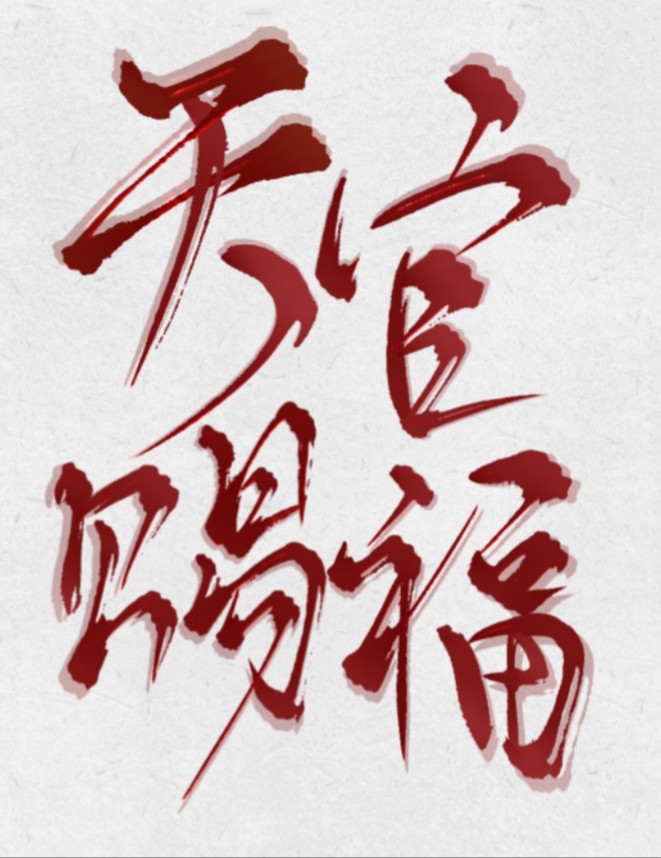 天官
赐福